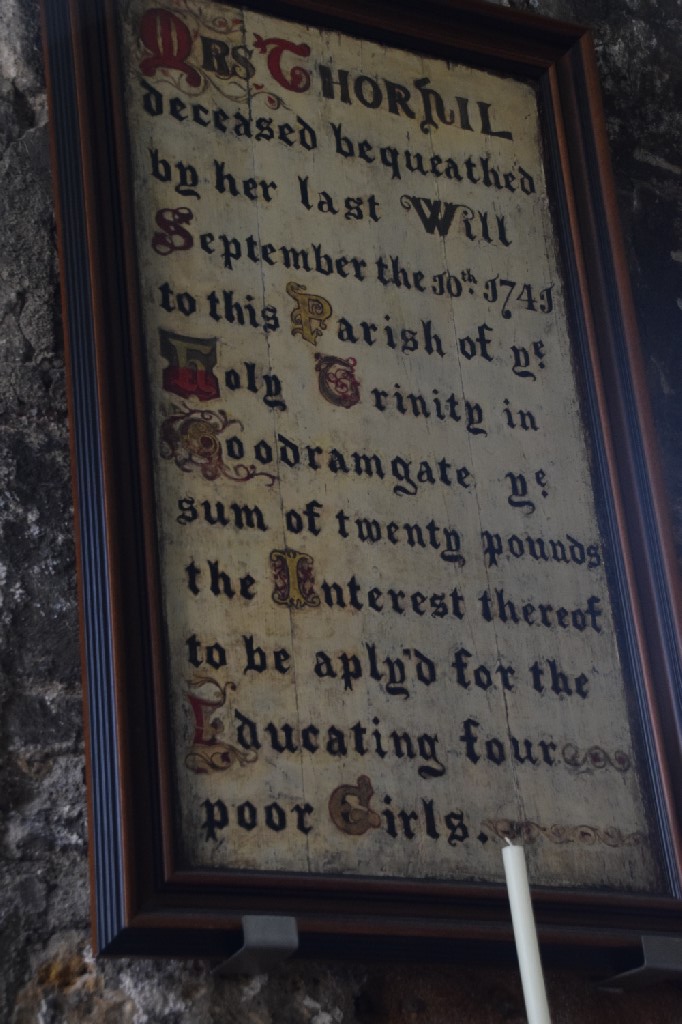 Mrs THORNIL
deceased bequeathed
by her last Will
September the 10th 1741
to this Parish of ye
Holy Trinity in
Goodramgate ye
sum of twenty pounds
the Interest thereof
to be aply'd for the
Educating four
poor Girls.